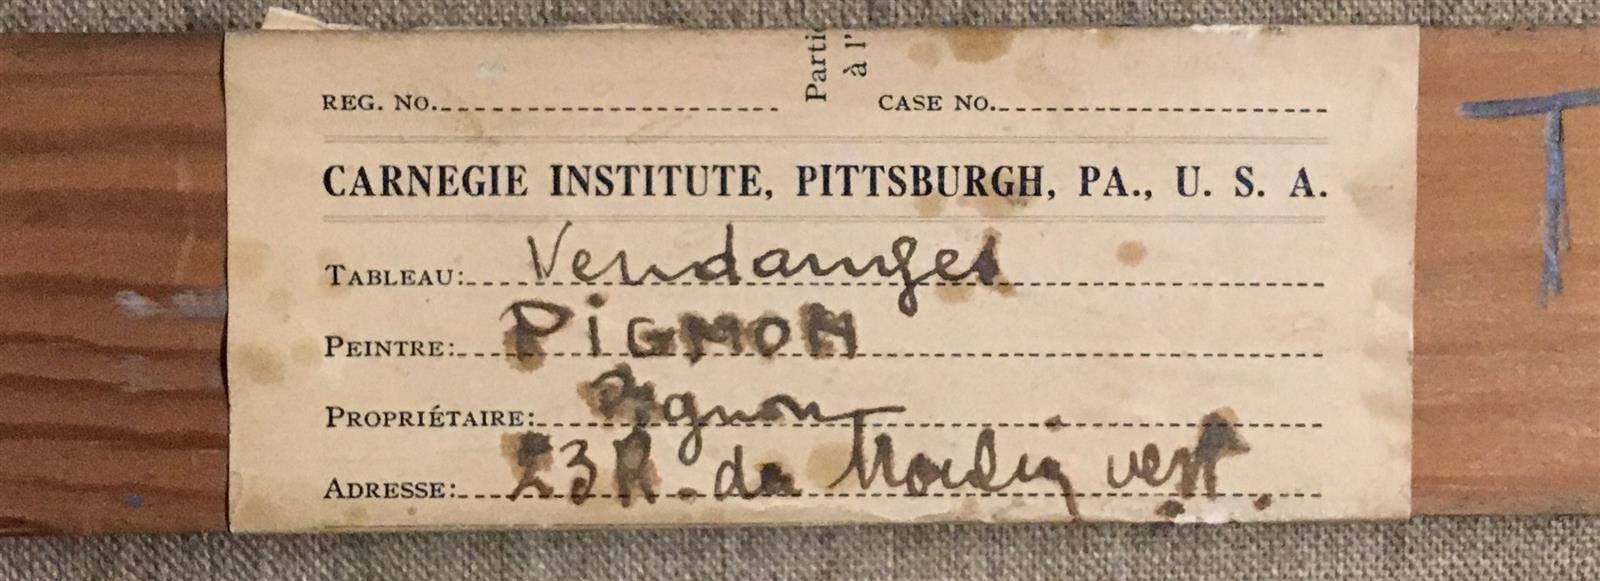 Partic
à l'
REG. NO. CASE NO.
CARNEGIE INSTITUTE, PITTSBURGH, PA., U. S. A.
TABLEAU: Vendanges
PEINTRE: PIGNON
PROPRIÉTAIRE: Pignon
ADRESSE: 23 R. du Moulin vert.
T